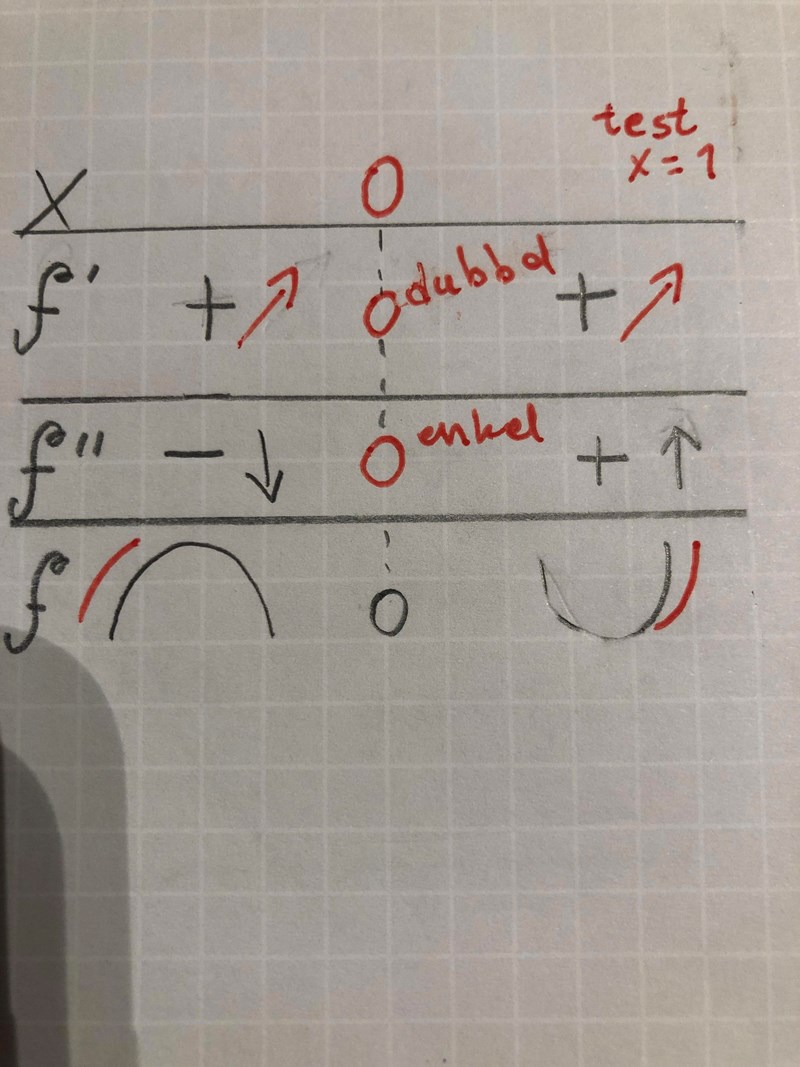 test
x = 1
X 0
f' + ↗ 0 dubbel + ↗
f'' − ↓ 0 enkel + ↑
f 0